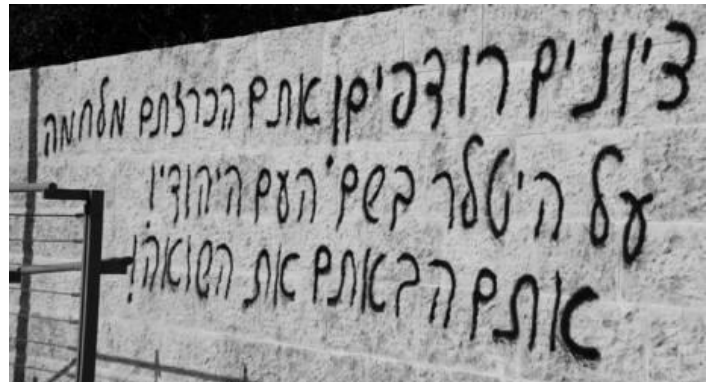 ציונים רודפים! אתם הכרזתם מלחמה
על היטלר בשם 'העם היהודי'!
אתם הבאתם את השואה!